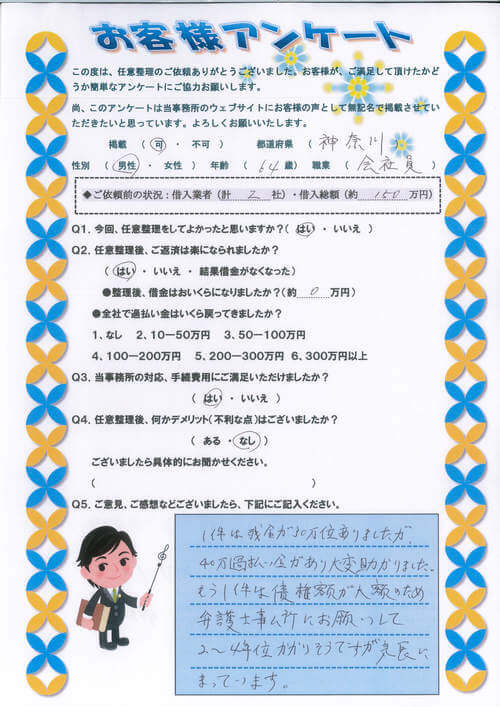 お客様アンケート
この度は、任意整理のご依頼ありがとうございました。お客様が、ご満足して頂けたかど
うか簡単なアンケートにご協力お願いします。
尚、このアンケートは当事務所のウェブサイトにお客様の声として無記名で掲載させてい
ただきたいと思っています。よろしくお願いいたします。
掲載 ( 可 ・ 不可 ) 都道府県 ( 神奈川 )
性別 ( 男性 ・ 女性 ) 年齢 ( 64 歳) 職業 ( 会社員 )
◆ご依頼前の状況:借入業者(計 2 社)・借入総額(約 150 万円)
Q1. 今回、任意整理をしてよかったと思いますか?( はい ・ いいえ )
Q2. 任意整理後、ご返済は楽になられましたか?
( はい ・ いいえ ・ 結果借金がなくなった)
●整理後、借金はおいくらになりましたか?(約 0 万円)
●全社で過払い金はいくら戻ってきましたか?
1、なし 2、10-50万円 3、50-100万円
4、100-200万円 5、200-300万円 6、300万円以上
Q3. 当事務所の対応、手続費用にご満足いただけましたか?
( はい ・ いいえ )
Q4. 任意整理後、何かデメリット(不利な点)はございましたか?
( ある ・ なし )
ございましたら具体的にお聞かせください。
( )
Q5. ご意見、ご感想などございましたら、下記にご記入ください。
1件は残金が30万位ありましたが、
40万過払い金があり大変助かりました。
もう1件は債権額が大額のため
弁護士事ム所にお願いして
2〜4年位かかりそうですが気長に
まっています。